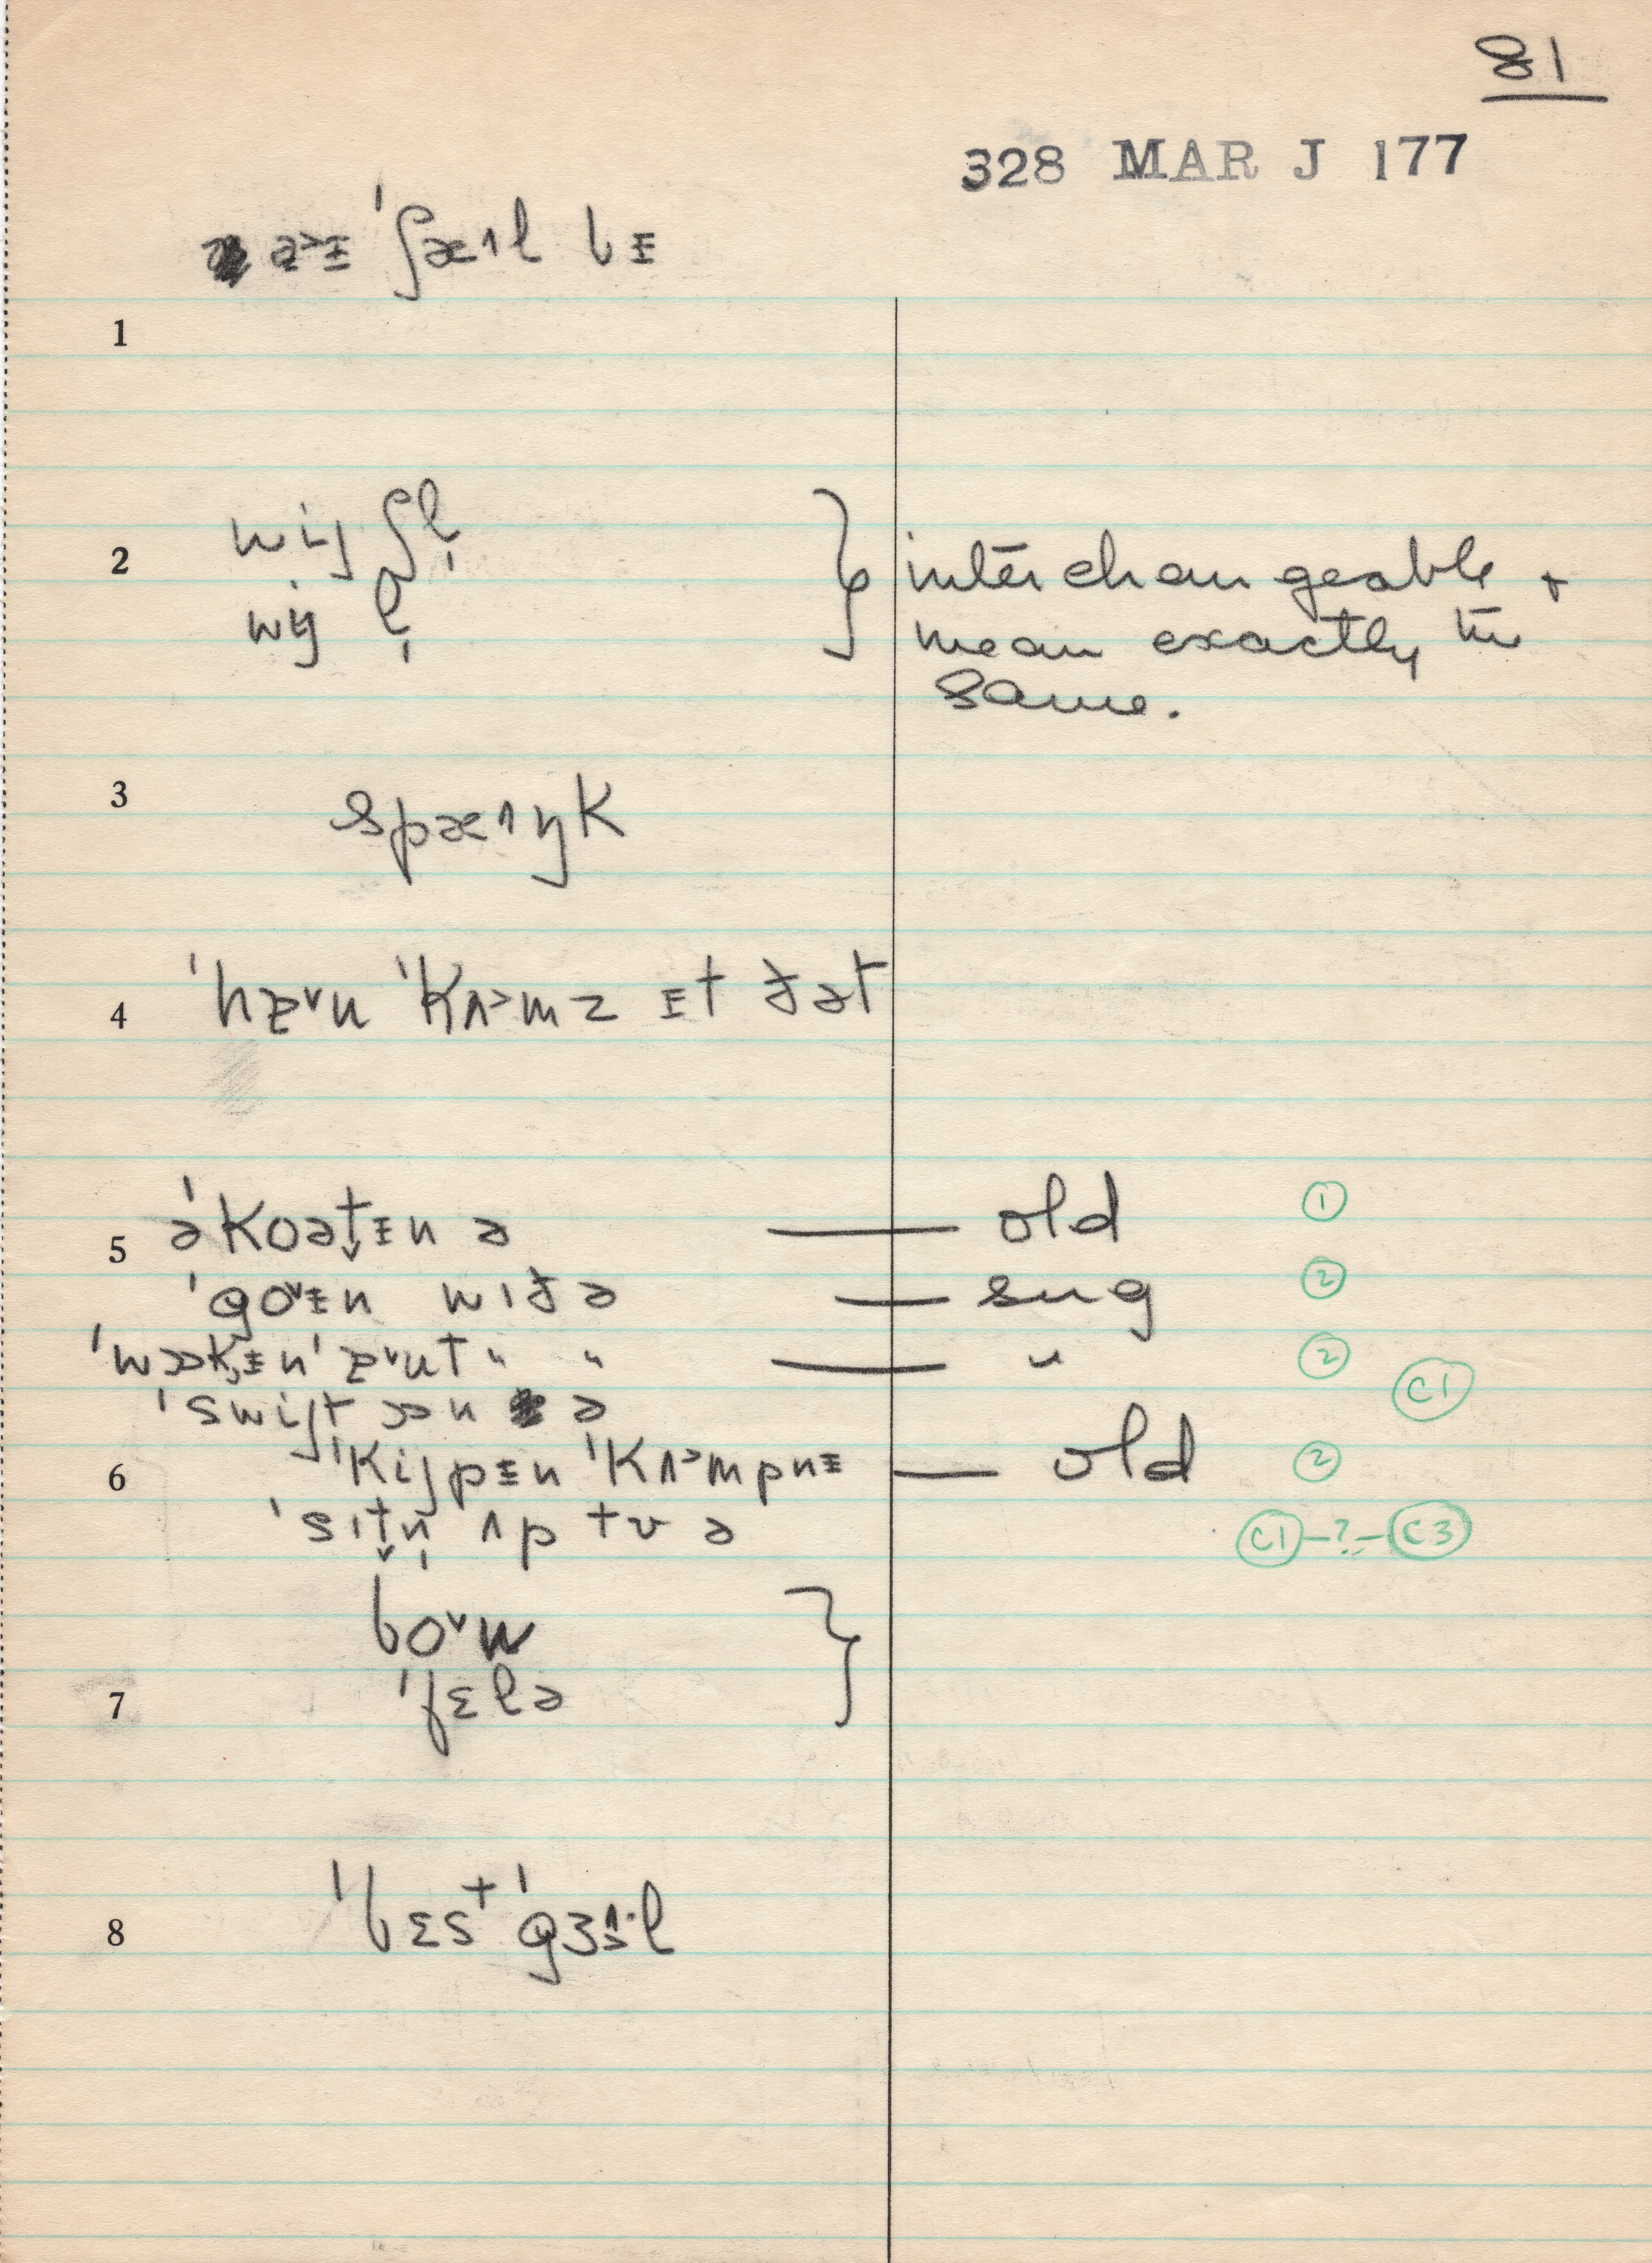 81
328 MAR J 177
a˃ɪ ˈʃæ˄l bɪ
1
wij ʃl̩
2
wij l̩
interchangeable +
mean exactly the
same.
3 spæ˄ŋk
4 ˈhɐ˅u ˈkʌ˃mz ɪt ðət
5 əˈkoət̬ɪn ə — old ①
ˈgo˅ɪn wɪð ə — sug ②
ˈwɔk̬ɪn ˈɐ˅ut " " — " ②
C1
ˈswijt ɔn ə
6 ˈkijpɪn ˈkʌ˃mpnɪ — old ②
ˈsɪt̬n̩ ʌp tʊ ə C1 -?- C3
bo˅w
7 ˈfɛlə
8 ˈbɛst ˈgɜ˄·l